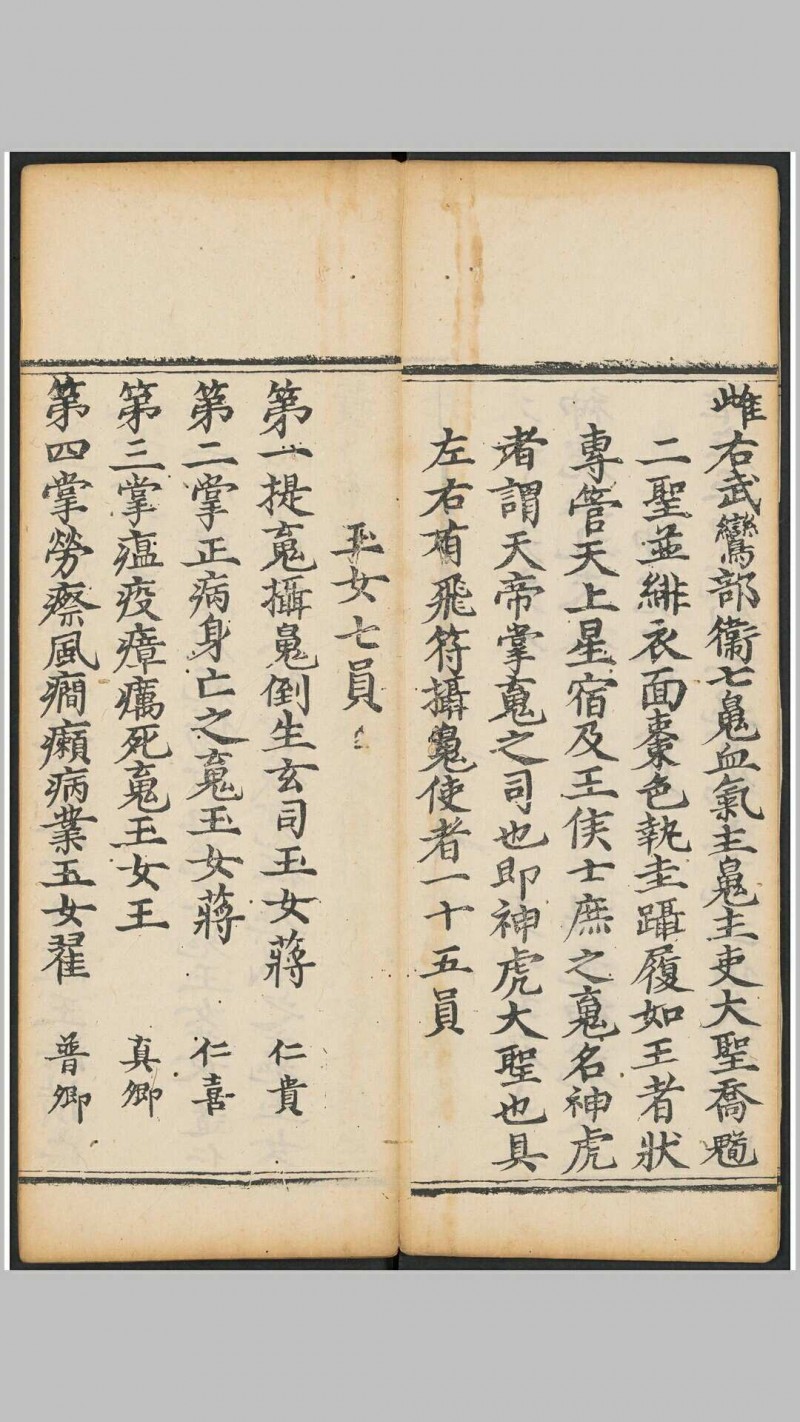 雌右武鸞部衛七䰟血氣主䰟主吏大聖喬
二聖並緋衣面棗色執圭躡履如王者狀
專管天上星宿及王侯士庶之䰟名神虎
者謂天帝掌䰟之司也即神虎大聖也具
左右有飛符攝䰟使者一十五員
玉女七員
第一提䰟攝䰟倒生玄司玉女蔣 仁貴
第二掌正病身亡之䰟玉女蔣 仁喜
第三掌瘟疫瘴癘死䰟玉女王 真卿
第四掌勞瘵風癎癩病業玉女翟 普卿